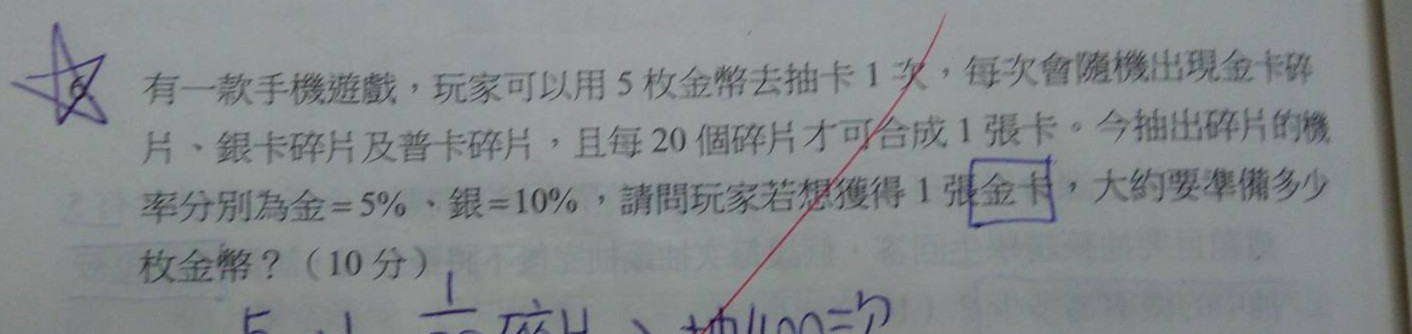 6 有一款手機遊戲，玩家可以用 5 枚金幣去抽卡 1 次，每次會隨機出現金卡碎
片、銀卡碎片及普卡碎片，且每 20 個碎片才可合成 1 張卡。今抽出碎片的機
率分別為金=5%、銀=10%，請問玩家若想獲得 1 張金卡，大約要準備多少
枚金幣？（10 分）